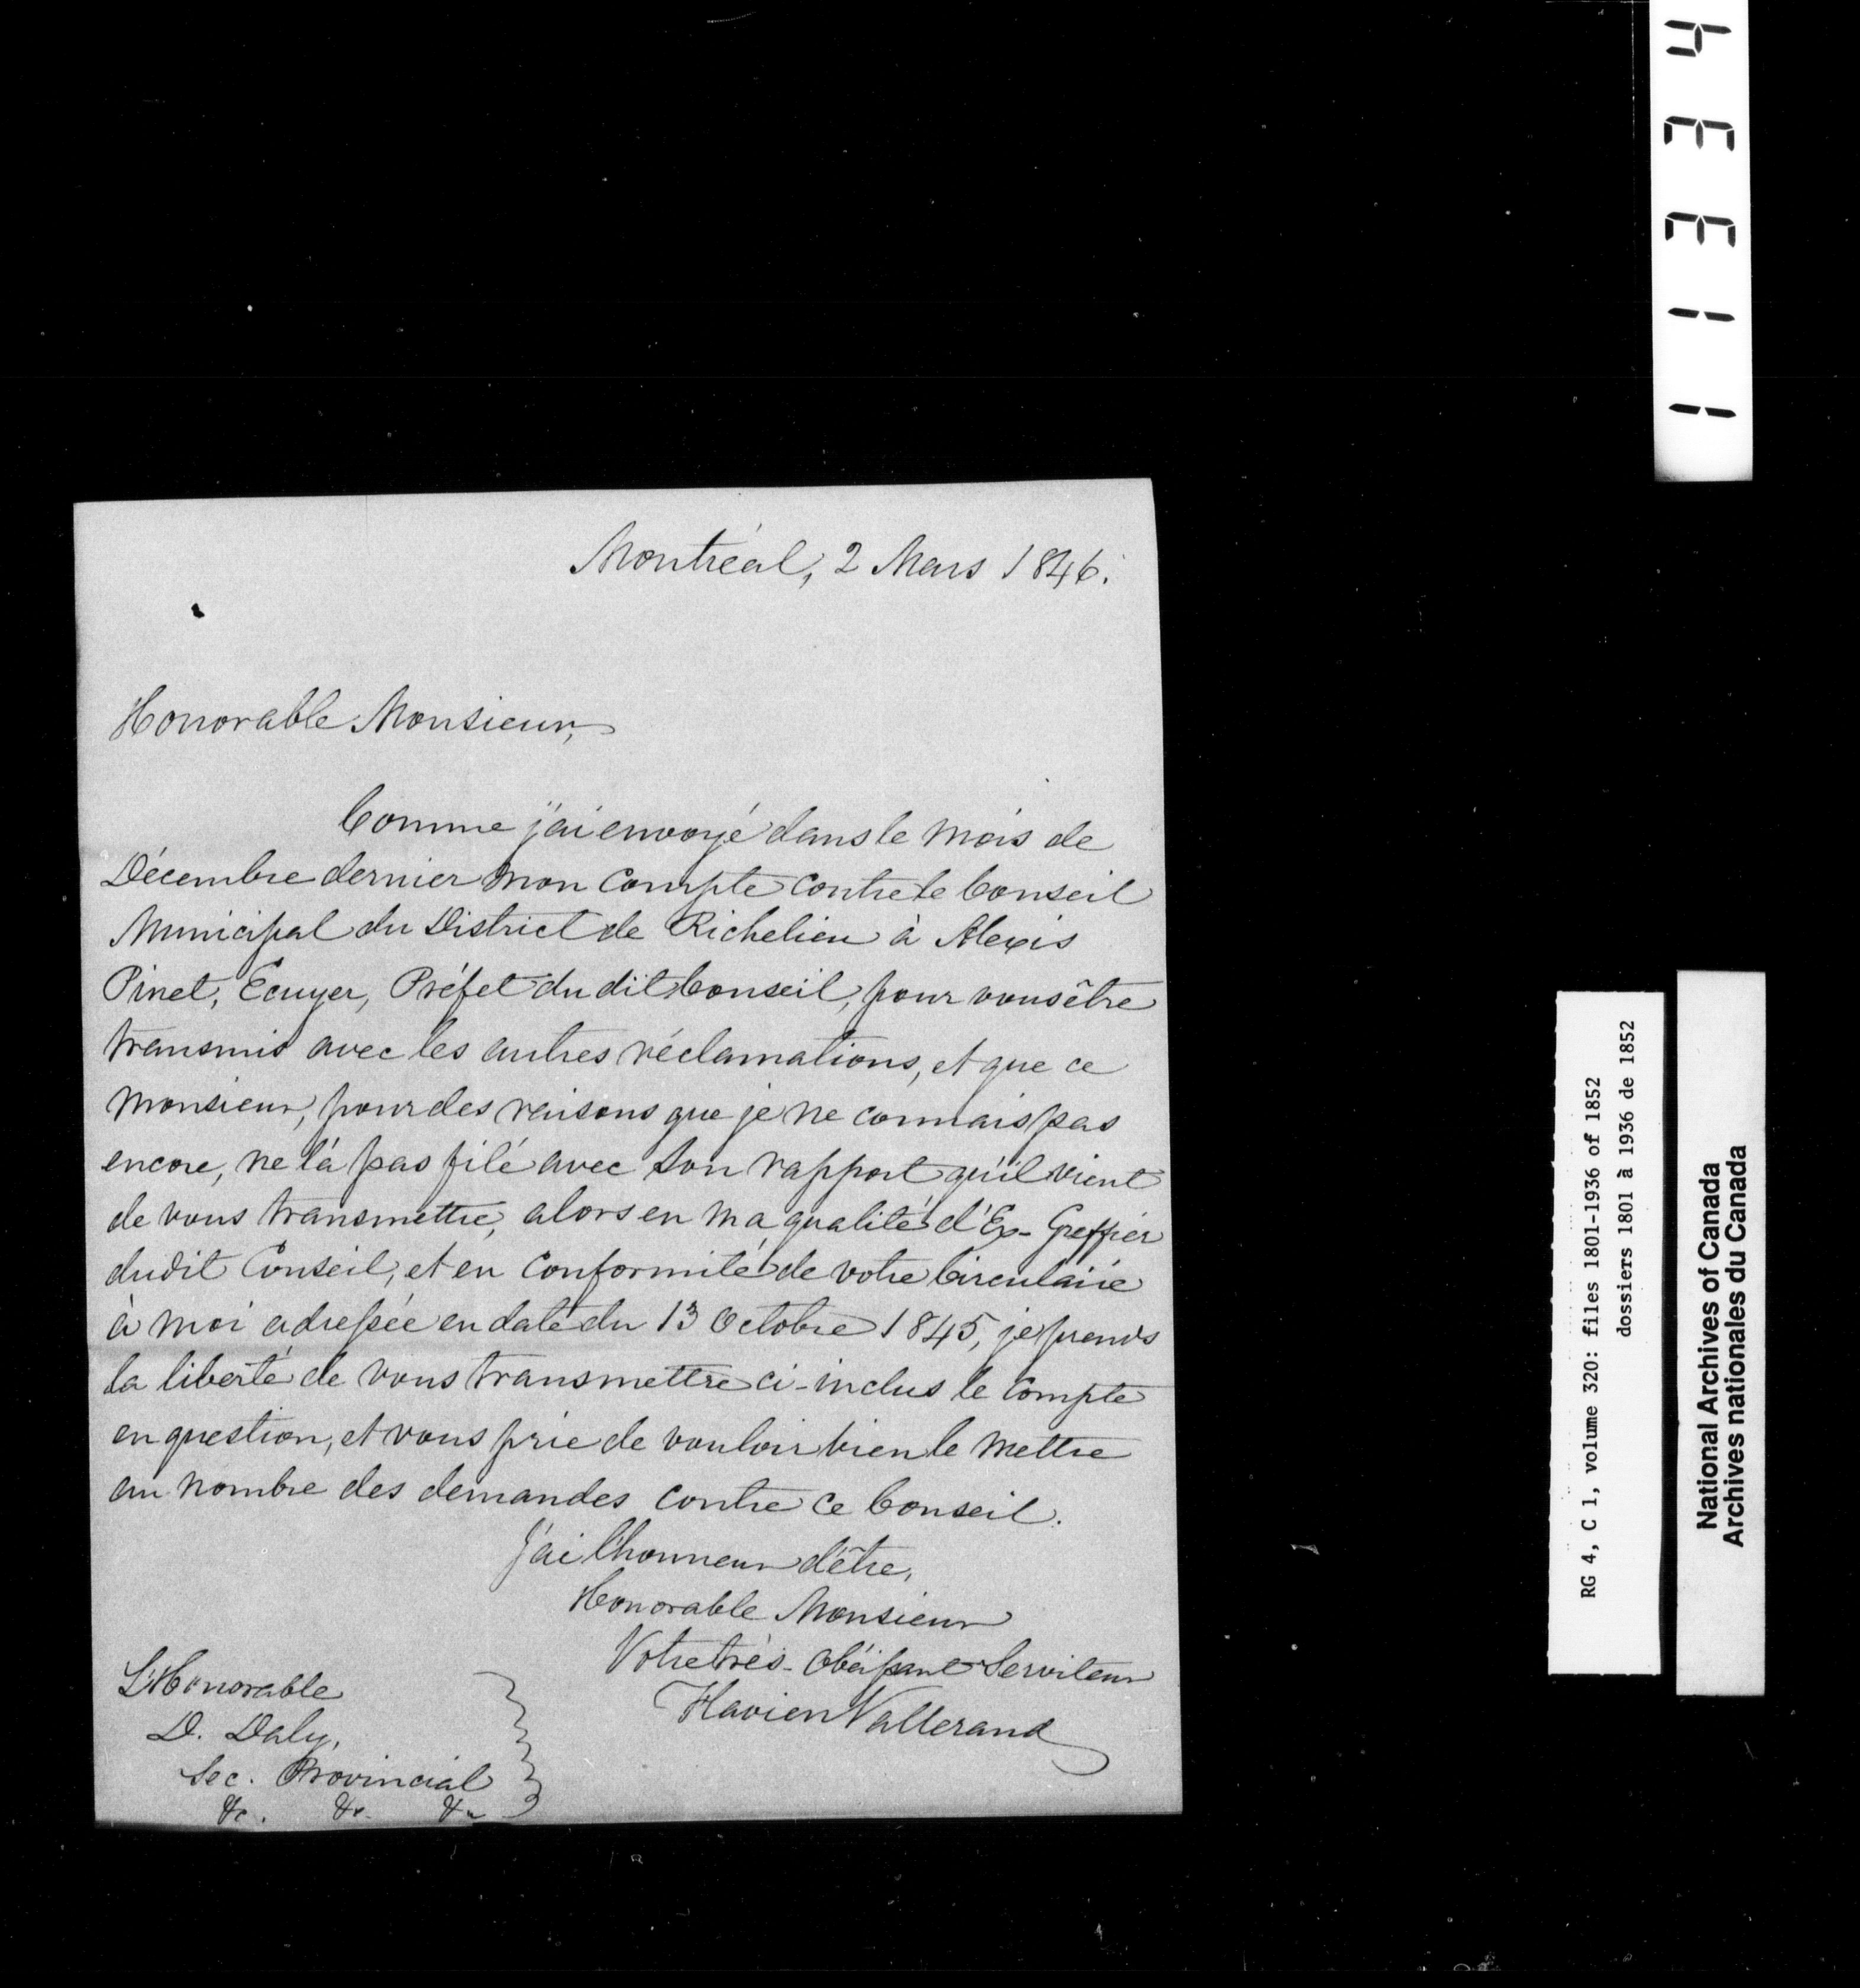 Montréal, 2 Mars 1846.
Honorable Monsieur,
Comme j'ai envoyé dans le mois de
Décembre dernier mon Compte contre le Conseil
Municipal du District de Richelieu à Alexis
Pinet, Ecuyer, Préfet du dit Conseil, pour vous être
transmis avec les autres réclamations, et que ce
Monsieur, pour des raisons que je ne connais pas
encore, ne l'a pas filé avec son rapport qu'il vient
de vous transmettre, alors en ma qualité d'Ex-Greffier
dudit Conseil, et en Conformité de votre Circulaire
à moi adressée en date du 13 Octobre 1845, je prends
la liberté de vous transmettre ci-inclus le Compte
en question, et vous prie de vouloir bien le mettre
au nombre des demandes contre ce Conseil.
J'ai l'honneur d'être,
Honorable Monsieur
Votre très-obéissant Serviteur
Flavien Vallerand
L'Honorable
D. Daly,
Sec. Provincial
&c. &c. &c
11334
RG 4, C 1, volume 320: files 1801-1936 of 1852
dossiers 1801 à 1936 de 1852
National Archives of Canada
Archives nationales du Canada